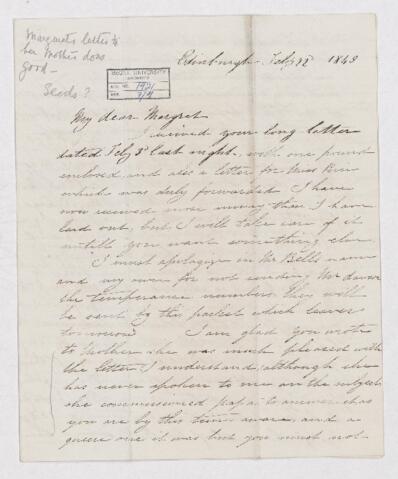 Margarets letter to
her Mother does
good –
Seeds?
Edinburgh Feby 1849
McGILL UNIVERSITY
ACC. NO. 1421
REF.
My dear Margret
I received your long letter
dated Feby 3d last night, with one pound
enclosed and also a letter for Miss
which was duly forwarded I have
now received more money than I have
laid out, but I will take care of it
untill you want something else.
I must apologize in Mr Bells name
and my own for not sending Mr
the temperance numbers they will
be sent by the packet which leaves
tomorrow I am glad you wrote
to Mother she was much pleased with
the letter I understand, although she
has never spoken to me on the subject
she commissioned papa to answer it as
you are by this time aware, and a
queer one it was but you must not